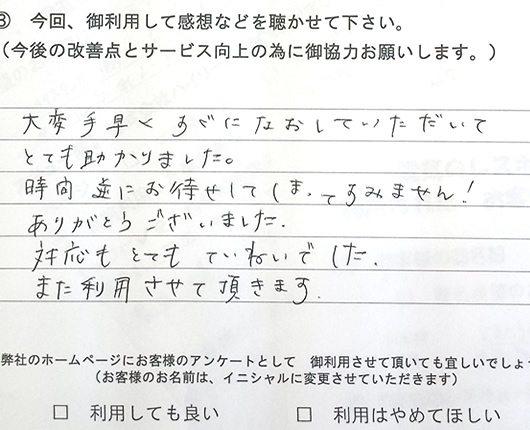 ③ 今回、御利用して感想などを聴かせて下さい。
(今後の改善点とサービス向上の為に御協力お願いします。)
大変手早く すぐになおしていただいて
とても助かりました。
時間 逆にお待せして しまってすみません!
ありがとうございました.
対応も とても ていねいでした.
また利用させて頂きます.
弊社のホームページにお客様のアンケートとして 御利用させて頂いても宜しいでしょ
(お客様のお名前は、イニシャルに変更させていただきます)
□ 利用しても良い □ 利用はやめてほしい